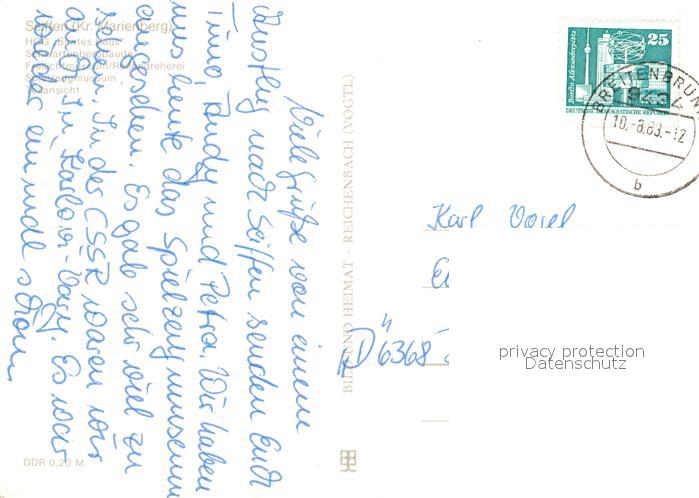 Seiffen (Kr. Marienberg)
HOG "Buntes Haus"
Schwartenbergbaude
Freilichtmuseum/Reifendreherei
Spielzeugmuseum
Teilansicht
Viele Grüße von einem
Ausflug nach Seiffen senden Euch
Timo, Andy und Petra. Wir haben
uns heute das Spielzeugmuseum
angesehen. Es gab sehr viel zu
sehen. In der CSSR waren wir
auch. In Karlovy-Vary. Es war
wieder einmal schön.
DDR 0,20 M
BILD UND HEIMAT · REICHENBACH (VOGTL)
25
Berlin, Alexanderplatz
DEUTSCHE DEMOKRATISCHE REPUBLIK
BREITENBRUNN
9434
10.-8.83.-12
b
Karl
D 6368
privacy protection
Datenschutz